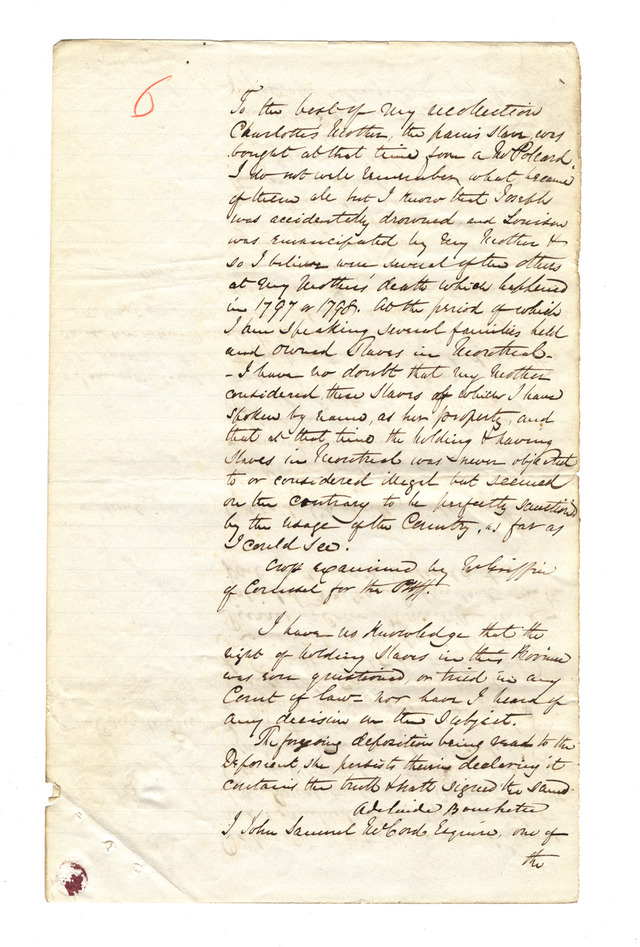 6
To the best of my recollection
Charlotte's Mother, the panis slave, was
bought at that time from a Mr
I do not well remember what became
of them all but I know that Joseph
was accidentally drowned and Louison
was emancipated by my Mother &
so I believe were several of the others
at my Mothers' death which happened
in 1797 or 1798. At the period of which
I am speaking several families held
and owned Slaves in Montreal -
- I have no doubt that my Mother
considered these Slaves of which I have
spoken by name, as her property, and
that at that time the holding & having
slaves in Montreal was never objected
to or considered illegal but seemed
on the contrary to be perfectly sanction'd
by the usage of the Country, as far as
I could see.
Cross examined by Mr Griffin
of Counsel for the Plff.
I have no knowledge that the
right of holding Slaves in this Province
was ever questioned, or tried in any
Court of law - nor have I heard of
any decision on the Subject.
The foregoing deposition being read to the
Deponent, she persists therein declaring it
contains the truth & hath signed the same.
Adelaide
I John Samuel McCord Esquire, one of
the